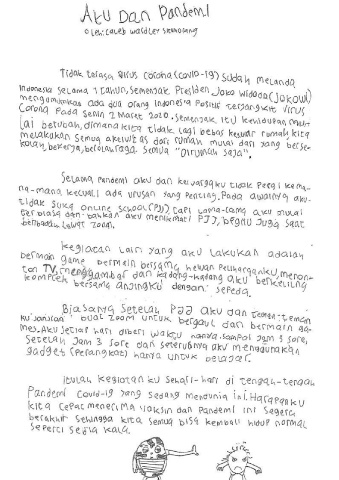 Aku Dan Pandemi
oleh: Caleb
Tidak terasa Virus corona (covid-19) sudah melanda
Indonesia selama 1 tahun, semenjak Presiden Joko Widodo (Jokowi)
mengumumkan ada dua orang Indonesia Positif terjangkit virus
Corona Pada Senin 2 Maret 2020. Semenjak itu kehidupan mu
lai berubah, dimana kita tidak lagi bebas keluar rumah, kita
melakukan semua aktivitas dari rumah mulai dari yang berse
kolah, bekerja, berolahraga. Semua "Dirumah saja".
Selama Pandemi aku dan keluargaku tidak Pergi kema
na-mana, kecuali ada urusan yang Penting. Pada awalnya aku
tidak suka online school (PJJ) tapi lama-lama aku mulai
terbiasa dan bahkan aku menikmati PJJ, begitu Juga saat
beribadah lewat zoom.
kegiatan lain yang aku lakukan adalah
bermain game, bermain bersama hewan Peliharganku, menon-
ton TV, menggambar dan kadang-kadang aku berkeliling
komplek bersama anjingku dengan sepeda.
Biasanya setelah PJJ aku dan teman-teman
ku buat zoom untuk bergaul dan bermain ga-
mes. Aku setiap hari diberi waktu hanya sampai Jam 3 sore,
Setelah Jam 3 sore dan seterusnya aku menggunakan
gadget (Perangkat) hanya untuk belajar.
Itulah kegiatanku Sehari-hari di tengah-tengah
Pandemi Covid-19 yang sedang mendunia ini. Harapanku
kita cepat menerima vaksin dan Pandemi ini segera
berakhir sehingga kita semua bisa kembali hidup normal
seperti sedia kala.